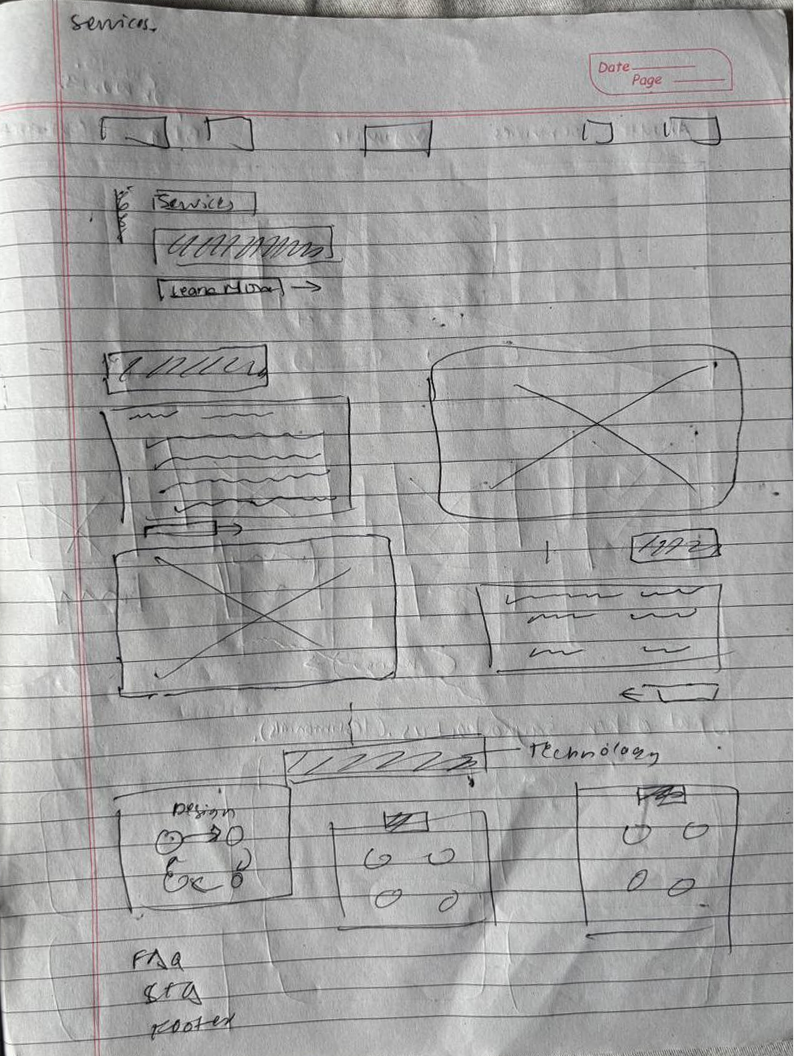 Services.
Date
Page
Services
Learn More
Technology
Design
FAQ
Footer